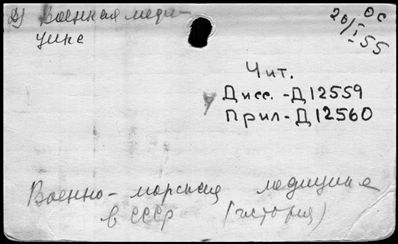 2) Военная меди-
цина
ОС
20/I-55
Чит.
у Дисс.-Д12559
Прил-Д12560
Военно-морская медицина
в СССР (история)